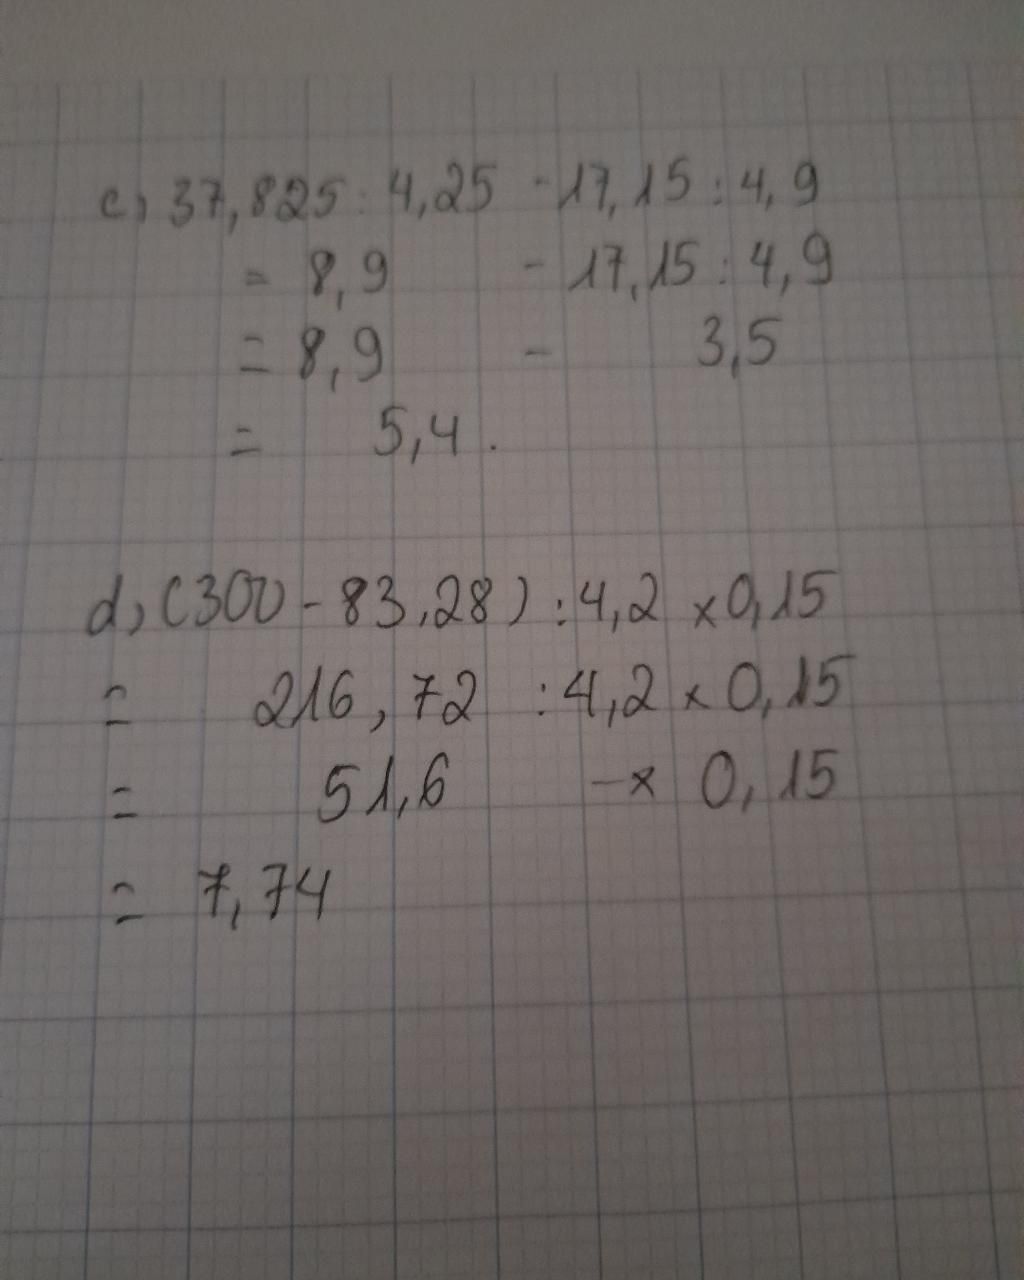 c, 37,825 : 4,25 - 17,15 : 4,9
= 8,9 - 17,15 : 4,9
= 8,9 - 3,5
= 5,4.
d, (300 - 83,28) : 4,2 × 0,15
= 216,72 : 4,2 × 0,15
= 51,6 -× 0,15
= 7,74